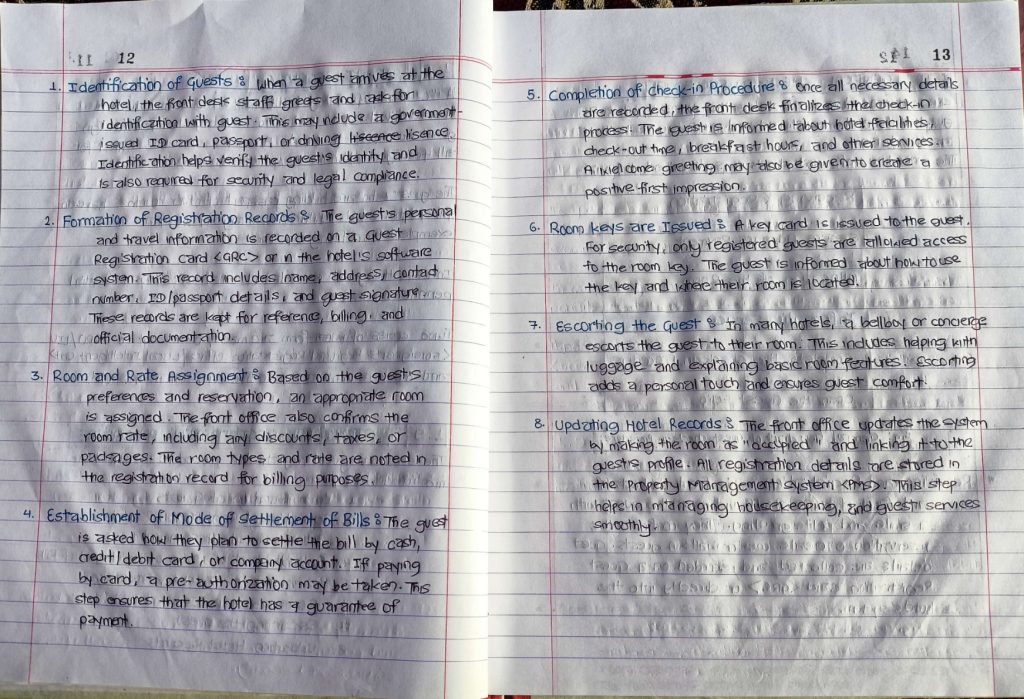 12
1. Identification of Guests : When a guest arrives at the
hotel, the front desk staff greets and ask for
identification with guest. This may include a government-
issued ID card, passport, or driving liscence lisence.
Identification helps verify the guest's identity and
is also required for security and legal compliance.
2. Formation of Registration Records : The guest's personal
and travel information is recorded on a Guest
Registration card <GRC> or in the hotel's software
system. This record includes name, address, contact
number, ID/passport details, and guest signature.
These records are kept for reference, billing and
official documentation.
3. Room and Rate Assignment : Based on the guest's
preferences and reservation, an appropriate room
is assigned. The front office also confirms the
room rate, including any discounts, taxes, or
packages. The room types and rate are noted in
the registration record for billing purposes.
4. Establishment of Mode of Settlement of Bills : The guest
is asked how they plan to settle the bill by cash,
credit/debit card, or company account. If paying
by card, a pre-authorization may be taken. This
step ensures that the hotel has a guarantee of
payment.
13
5. Completion of check-in Procedure : Once all necessary details
are recorded, the front desk finalizes the check-in
process. The guest is informed about hotel facilities,
check-out time, breakfast hours, and other services.
A welcome greeting may also be given to create a
positive first impression.
6. Room keys are Issued : A key card is issued to the guest.
For security, only registered guests are allowed access
to the room key. The guest is informed about how to use
the key and where their room is located.
7. Escorting the Guest : In many hotels, a bellboy or concierge
escorts the guest to their room. This includes helping with
luggage and explaining basic room features. Escorting
adds a personal touch and ensures guest comfort.
8. Updating Hotel Records : The front office updates the system
by making the room as "occupied" and linking it to the
guest's profile. All registration details are stored in
the Property Management System <PMS>. This step
helps in managing housekeeping, and guest services
smoothly.